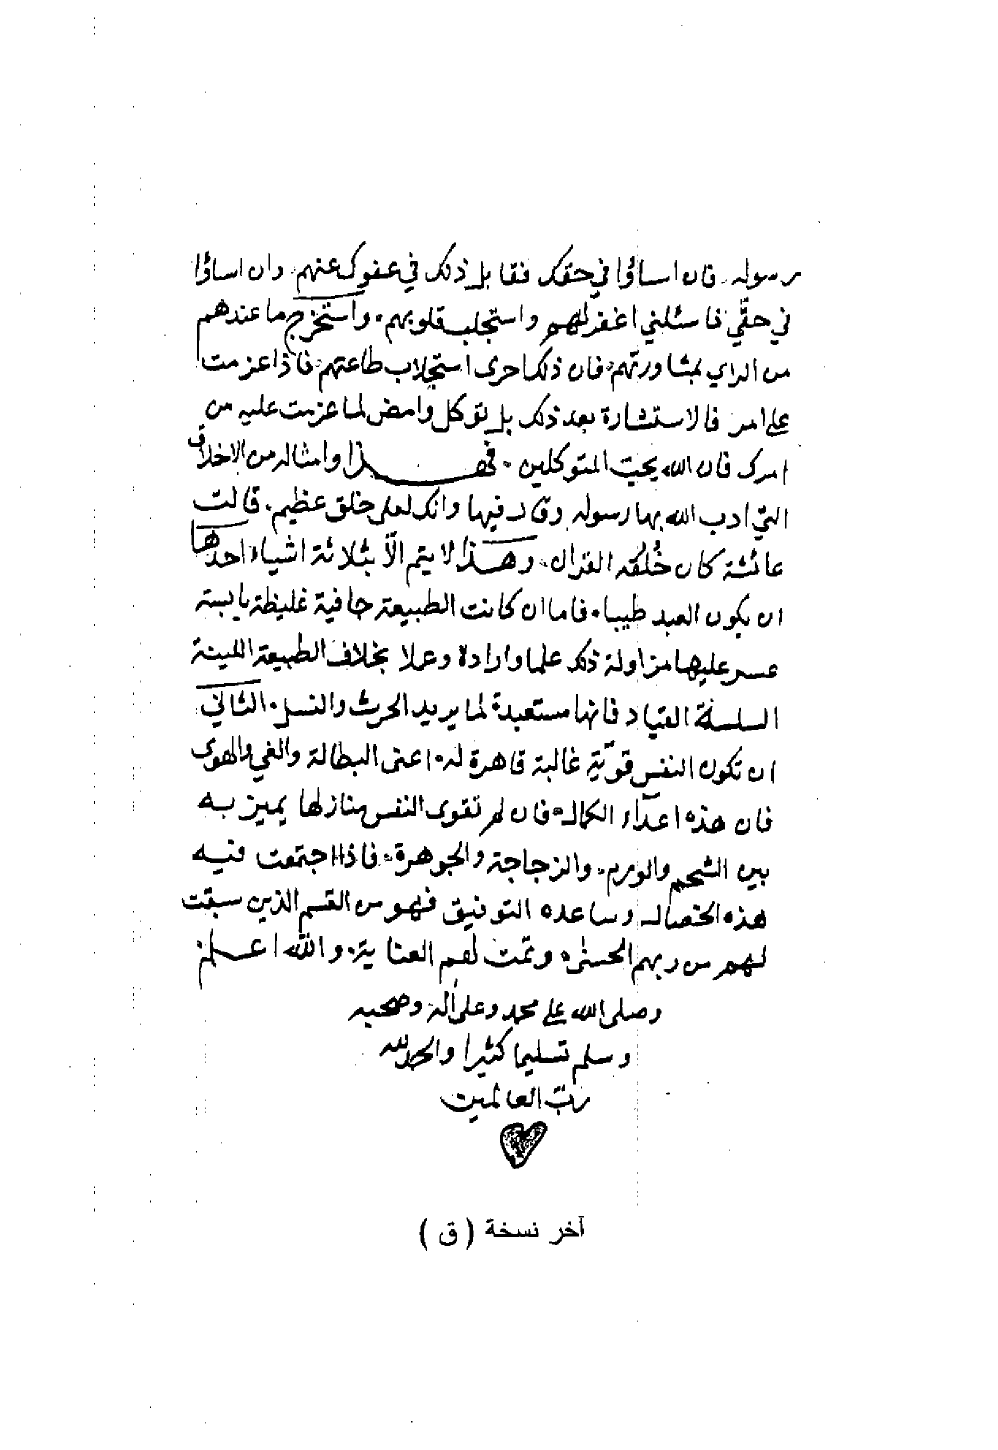 رسوله. فان اساؤا في حقك فقابل ذلك في عفوك عنهم. وان اساؤا
في حقي فاسئلني اغفر لهم واستجلب قلوبهم. واستخرج ما عندهم
من الراي بمشاورتهم. فان ذلك احرى استجلاب طاعتهم. فاذا عزمت
على امر فالاستشارة بعد ذلك بل توكل وامض لما عزمت عليه من
امرك فان الله يحب المتوكلين. فهذا وامثاله من الاخلاق
التي ادب الله بها رسوله وقال فيها وانك لعلى خلق عظيم. قالت
عائشة كان خُلُقه القران. وهذا لا يتم الّا بثلاثة اشياء احدها
ان يكون العبد طيبا. فاما ان كانت الطبيعة جافية غليظة يابسة
عسر عليها مزاولة ذلك علما وارادة وعملا بخلاف الطبيعة اللينة
السلسلة القياد فانها مستعبدة لما يريد الحرث والنسل. الثاني
ان تكون النفس قويّة غالبة قاهرة له اعنى البطالة والغي والهوى
فان هذه اعدآء الكمال. فان لم تقوى النفس منازلها يميز به
بين الشحم والورم. والزجاجة والجوهرة. فاذا اجتمعت فيه
هذه الخصال وساعده التوفيق فهو من القسم الذين سبقت
لهم من ربهم الحسنى. وتمت لهم العناية. والله اعلم
وصلى الله على محمد وعلى آله وصحبه
وسلم تسليما كثيرا والحمد لله
ربّ العالمين
آخر نسخة ( ق )